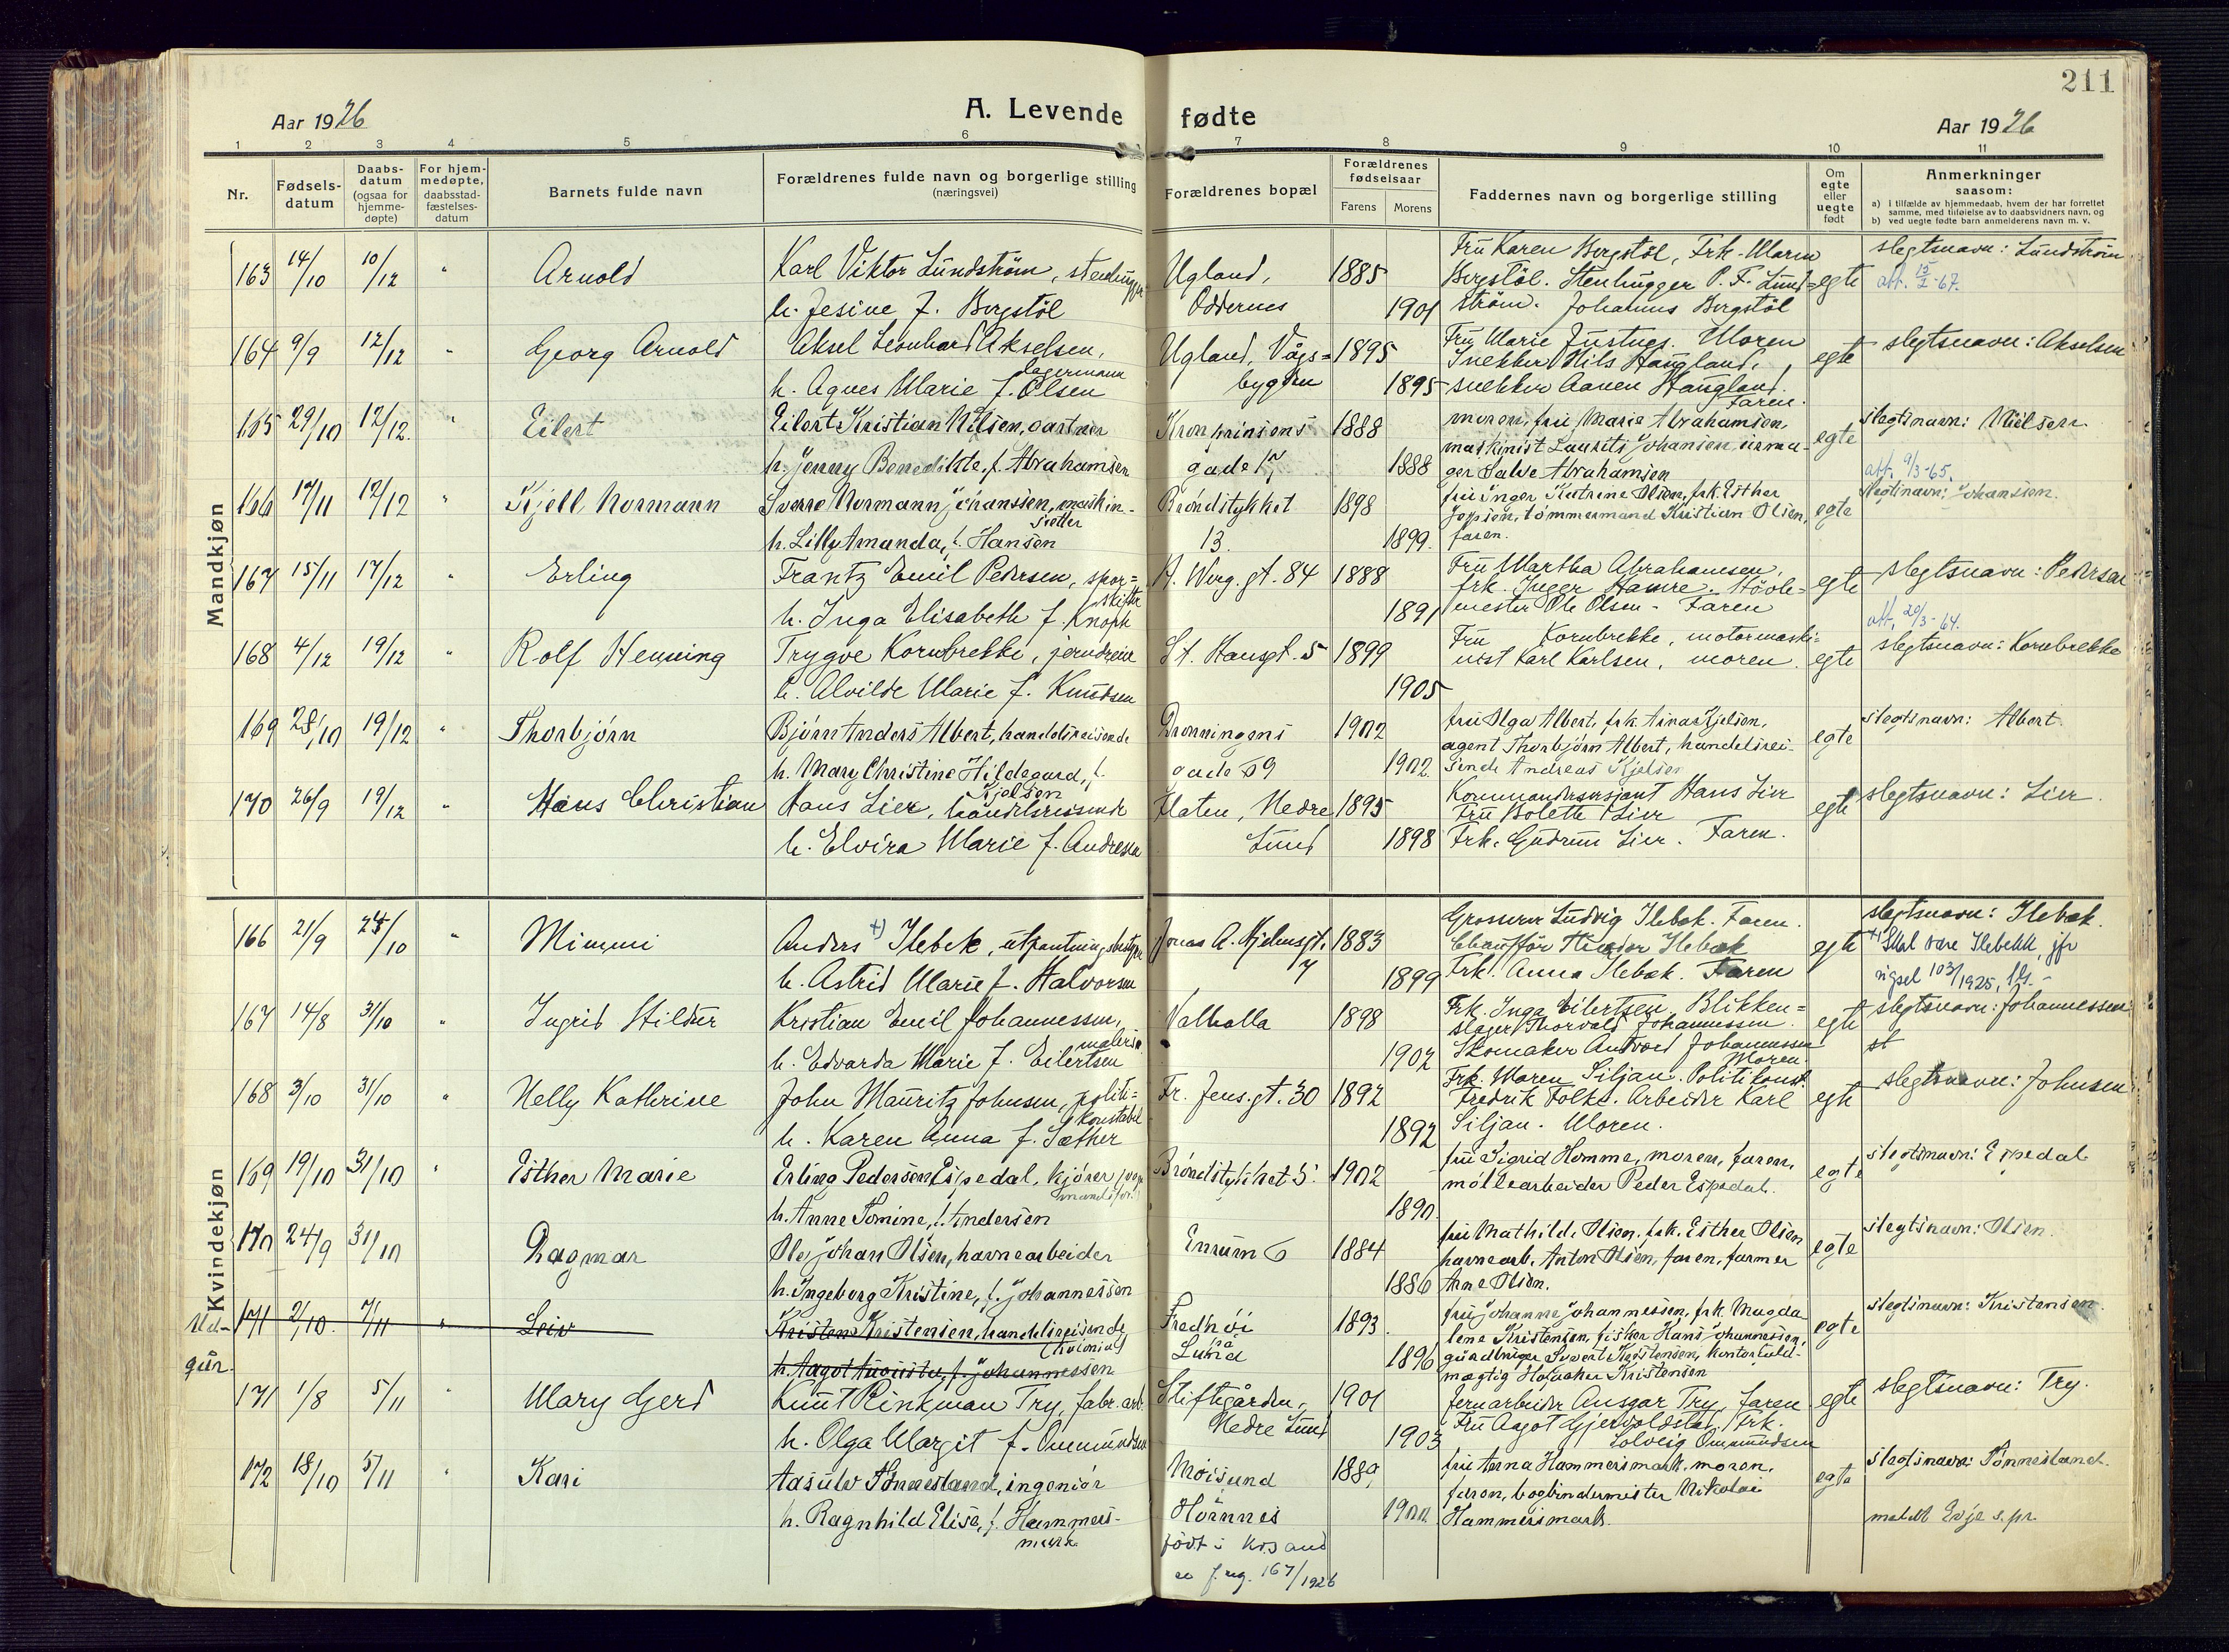 211
Aar 1926
A. Levende fødte
Aar 1926
1 2 3 4 5 6 7 8 9 10 11
Nr.
Fødsels-
datum
Daabs-
datum
(ogsaa for
hjemme-
døpte)
For hjem-
medøpte,
daabsstad-
fæstelses-
datum
Barnets fulde navn
Forældrenes fulde navn og borgerlige stilling
(næringsvei)
Forældrenes bopæl
Forældrenes
fødselsaar
Farens Morens
Faddernes navn og borgerlige stilling
Om
egte
eller
uegte
født
Anmerkninger
saasom:
a) I tilfælde av hjemmedaab, hvem der har forrettet
samme, med tilføielse av to daabsvidners navn, og
b) ved uegte fødte barn anmelderens navn m. v.
Mandkjøn
163 14/10 10/12 " Arnold
Karl Viktor Lundström, stenhugger
h. Jesine f. Bergstöl
Ugland,
Oddernes
1885
1901
Fru Karen Bergstöl, Frk. Maren
Bergstöl. Stenhugger P. F. Lund=
ström. Johannes Bergstöl
egte
slegtsnavn: Lundström
att. -67.
164 9/9 12/12 " Georg Arnold
Aksel Leonhard Akselsen,
lagermann
h. Agnes Marie f. Olsen
Ugland, Vågs=
bygden
1895
1895
Fru Marie Moren
Snekker Nils Haugland,
snekker Aanen Haugland.
Faren.
egte
slegtsnavn: Akselsen
165 29/10 12/12. " Eilert
Eilert Kristian Nilsen, gartner
h. Jenny Benedikte, f. Abrahamsen
Kronprinsens
gade
1888
1888
moren, fru Marie Abrahamsen,
maskinist Laurits Johansen, urma-
ger Salve Abrahamsen
egte
slegtsnavn: Nielsen.
att. 9/3-65.
166 17/11 12/12 " Kjell Normann
Sverre Normann Johansen, maskin-
h. Lilly Amanda, f. Hansen
Brøndstykket
13.
1898
1899.
fru Inger Katrine Olsen, frk. Esther
Jeppsen, tømmermand Kristian Olsen,
faren.
egte
slegtsnavn: Johansen.
167 15/11 17/12 " Erling
Frantz Emil Pedersen, spor=
skifter
h. Inga Elisabeth f. Knoph
H. Werg. gt. 84
1888
1891
Fru Martha Abrahamsen,
frk. Inger Hamre. Hövle=
mester Ole Olsen - Faren
egte
slegtsnavn: Pedersen
att. 20/3-64.
168 4/12 19/12 " Rolf Henning
Trygve Kornbrekke, jerndreier
h. Alvilde Marie f. Knudsen
St. Hansgt. 5
1899
1905
Fru Kornbrekke, motormaski=
nist Karl Karlsen, moren.
egte
slegtsnavn: Kornbrekke
169 28/10 19/12 " Thorbjørn
Bjørn Anders Albert, handelsreisende
h. Mary Christine Hildegard, f.
Kjelsen
Dronningens
gade 69
1902
1902.
fru Olga Albert, frk. Kjelsen,
agent Thorbjørn Albert, handelsrei-
sende Andreas Kjelsen
egte
slegtsnavn: Albert.
170 26/9 19/12 " Hans Christian
Hans Lier, handelsreisende
h. Elvira Marie f. Andresen
Flaten, Nedre
Lund
1895
1898
Kommandersersjant Hans Lier
Fru Bolette Lier
Frk. Gudrun Lier. Faren.
egte
slegtsnavn: Lier.
Kvindekjøn
166 21/9 24/10 " Mimmi
Anders +) Ilebek, utpantningsbestyrer
h. Astrid Marie f. Halvorsen
Jonas A. Hjelmsgt.
7
1883
1899
Grosserer Ludvig Ilebek. Faren.
Chauffør Theodor Ilebæk
Frk. Anna Ilebæk. Faren
egte
slegtsnavn: Ilebæk.
+) Skal være Ilebekk, jfr
103/1925,
167 14/8 31/10 " Ingrid Hildur
Kristian Emil Johannessen,
maler
h. Edvarda Marie f. Eilertsen
Valhalla
1898
1902
Frk. Inga Eilertsen Blikken=
slager Thorvald Johannessen.
Skomaker Johannessen
Moren.
egte
slegtsnavn: Johannessen
st
168 3/10 31/10 " Nelly Kathrine
John Mauritz Johnsen, politi=
konstabel
h. Karen Anna f. Sæther
Fr. Jens. gt. 30
1892
1892
Frk. Maren Siljan. Politikonst.
Fredrik Folke. Arbeider Karl
Siljan. Moren.
egte
slegtsnavn: Johnsen
169 19/10 31/10 " Esther Marie
Erling Pedersen Espedal, kjører
h. Anne Tomine, f. Andersen
Brøndstykket 5.
1902
1890.
fru Sigrid Homme, moren, faren,
møllearbeider Peder Espedal.
egte
slegtsnavn: Espedal
170 24/9 31/10 Dagmar
Ole Johan Olsen, havnearbeider
h. Ingeborg Kristine, f. Johannessen
Enrum 6
1884
1886
fru Mathilde Olsen, frk. Esther Olsen
havnearb. Anton Olsen, faren, farmer
Arne Olsen.
egte
slegtsnavn: Olsen.
Ud-
går.
171 2/10. 7/11 " Leiv
Kristen Kristensen, handelsreisende
(kolonial)
h. Aagot Augusta, f. Johannessen
Fredhøi
Lund
1893.
1896
fru Johanne Johannessen, frk. Magda
lene Kristensen, fisker Hans Johannessen,
gårdbruger Syvert Kristensen, kontorfuld-
mægtig Håaker Kristensen
egte
slegtsnavn: Kristensen.
171 1/8 5/11 " Mary Gerd
Knut Rinkman Try, fabr. arb.
h. Olga Margit f. Ommundsen
Stiftgården,
Nedre Lund
1901
1903
Jernarbeider Ansgar Try, faren
Fru Aagot Gjervoldstad, Frk.
Solveig Ommundsen
egte
slegtsnavn: Try.
172 18/10 5/11 " Kari
Aasulv Tønnesland, ingeniør
h. Ragnhild Elise, f. Hammers-
mark
Moisund
Hornnes
født i Krsand
se f. reg. 167/1926
1889
1900.
fru Anna Hammersmark, moren,
faren, bogbindermester Nikolai
Hammersmark.
egte
slegtsnavn: Tønnesland.
meldt Evje s.pr.